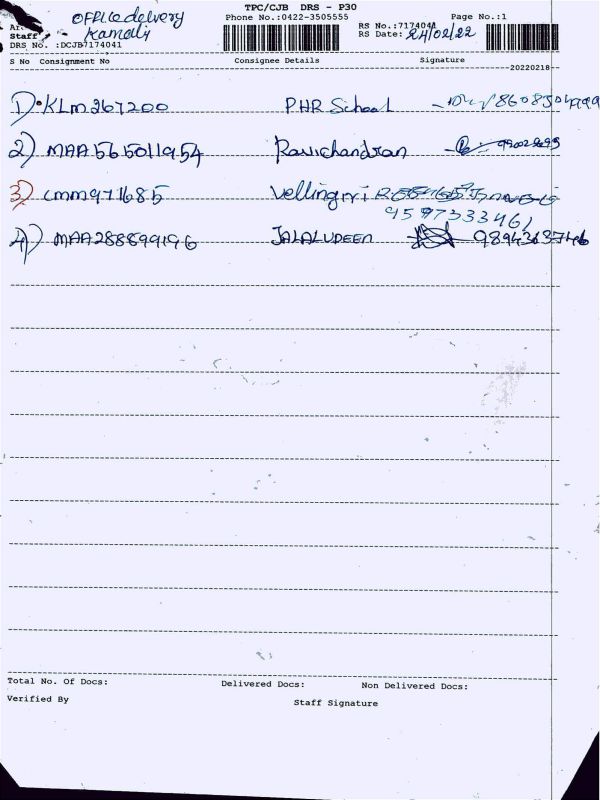 TPC/CJB DRS - P30
Office delivery
Phone No.:0422-3505555
RS No.:7174041
Page No.:1
Staff
Kamali
RS Date: 24/02/22
DRS No. :DCJB7174041
S No Consignment No Consignee Details Signature
20220218
1) KLM267200 PHR School 8608504999
2) MAA565011954 Ravichandran
3) CMM971685 Vellingiri
9597333461
4) MAA288899196 JALALUDEEN
Total No. Of Docs: Delivered Docs: Non Delivered Docs:
Verified By Staff Signature